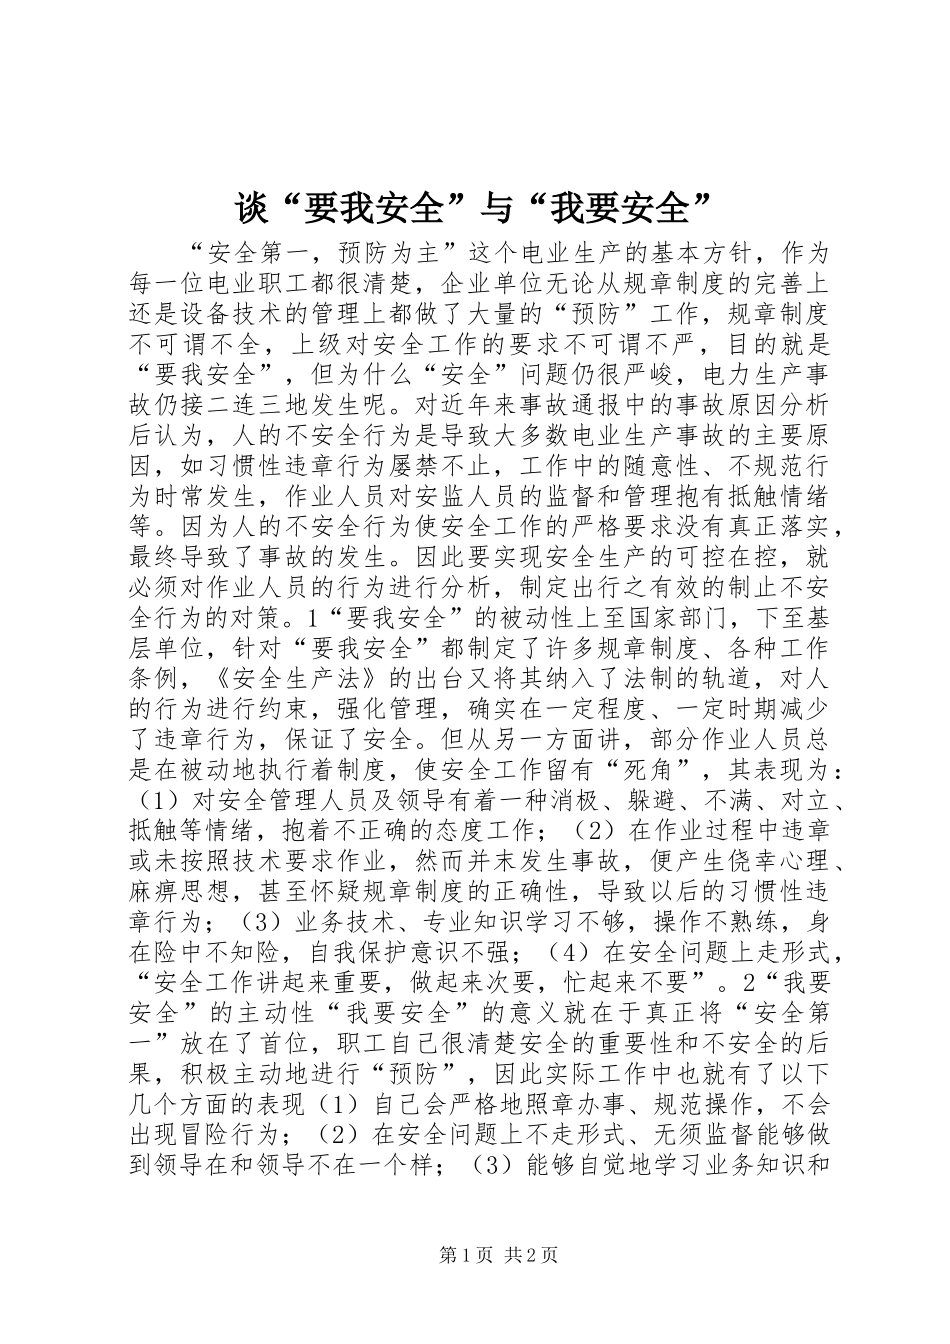 谈“要我安全”与“我要安全”
“安全第一，预防为主”这个电业生产的基本方针，作为
每一位电业职工都很清楚，企业单位无论从规章制度的完善上
还是设备技术的管理上都做了大量的“预防”工作，规章制度
不可谓不全，上级对安全工作的要求不可谓不严，目的就是
“要我安全”，但为什么“安全”问题仍很严峻，电力生产事
故仍接二连三地发生呢。对近年来事故通报中的事故原因分析
后认为，人的不安全行为是导致大多数电业生产事故的主要原
因，如习惯性违章行为屡禁不止，工作中的随意性、不规范行
为时常发生，作业人员对安监人员的监督和管理抱有抵触情绪
等。因为人的不安全行为使安全工作的严格要求没有真正落实，
最终导致了事故的发生。因此要实现安全生产的可控在控，就
必须对作业人员的行为进行分析，制定出行之有效的制止不安
全行为的对策。1“要我安全”的被动性上至国家部门，下至基
层单位，针对“要我安全”都制定了许多规章制度、各种工作
条例，《安全生产法》的出台又将其纳入了法制的轨道，对人
的行为进行约束，强化管理，确实在一定程度、一定时期减少
了违章行为，保证了安全。但从另一方面讲，部分作业人员总
是在被动地执行着制度，使安全工作留有“死角”，其表现为：
（1）对安全管理人员及领导有着一种消极、躲避、不满、对立、
抵触等情绪，抱着不正确的态度工作；（2）在作业过程中违章
或未按照技术要求作业，然而并末发生事故，便产生侥幸心理、
麻痹思想，甚至怀疑规章制度的正确性，导致以后的习惯性违
章行为；（3）业务技术、专业知识学习不够，操作不熟练，身
在险中不知险，自我保护意识不强；（4）在安全问题上走形式，
“安全工作讲起来重要，做起来次要，忙起来不要”。2“我要
安全”的主动性“我要安全”的意义就在于真正将“安全第
一”放在了首位，职工自己很清楚安全的重要性和不安全的后
果，积极主动地进行“预防”，因此实际工作中也就有了以下
几个方面的表现（1）自己会严格地照章办事、规范操作，不会
出现冒险行为；（2）在安全问题上不走形式、无须监督能够做
到领导在和领导不在一个样；（3）能够自觉地学习业务知识和
第1页 共2页